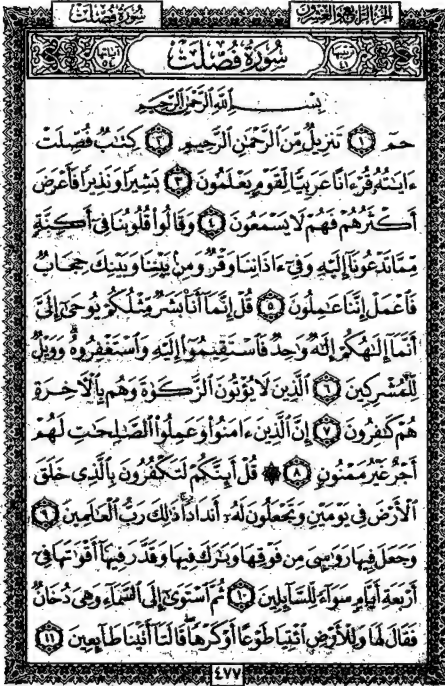 سُورَةُ فُصِّلَتْ
الجُزْءُ الرَّابِعُ وَالعِشْرُونَ
سُورَةُ فُصِّلَتْ
بِسْمِ اللَّهِ الرَّحْمَٰنِ الرَّحِيمِ
حمٓ ١ تَنزِيلٌ مِّنَ ٱلرَّحْمَٰنِ ٱلرَّحِيمِ ٢ كِتَٰبٌ فُصِّلَتْ
ءَايَٰتُهُۥ قُرْءَانًا عَرَبِيًّا لِّقَوْمٍ يَعْلَمُونَ ٣ بَشِيرًا وَنَذِيرًا فَأَعْرَضَ
أَكْثَرُهُمْ فَهُمْ لَا يَسْمَعُونَ ٤ وَقَالُوا۟ قُلُوبُنَا فِىٓ أَكِنَّةٍ
مِّمَّا تَدْعُونَآ إِلَيْهِ وَفِىٓ ءَاذَانِنَا وَقْرٌ وَمِنۢ بَيْنِنَا وَبَيْنِكَ حِجَابٌ
فَٱعْمَلْ إِنَّنَا عَٰمِلُونَ ٥ قُلْ إِنَّمَآ أَنَا۠ بَشَرٌ مِّثْلُكُمْ يُوحَىٰٓ إِلَىَّ
أَنَّمَآ إِلَٰهُكُمْ إِلَٰهٌ وَٰحِدٌ فَٱسْتَقِيمُوٓا۟ إِلَيْهِ وَٱسْتَغْفِرُوهُ وَوَيْلٌ
لِّلْمُشْرِكِينَ ٦ ٱلَّذِينَ لَا يُؤْتُونَ ٱلزَّكَوٰةَ وَهُم بِٱلْءَاخِرَةِ
هُمْ كَٰفِرُونَ ٧ إِنَّ ٱلَّذِينَ ءَامَنُوا۟ وَعَمِلُوا۟ ٱلصَّٰلِحَٰتِ لَهُمْ
أَجْرٌ غَيْرُ مَمْنُونٍ ٨ ۞ قُلْ أَئِنَّكُمْ لَتَكْفُرُونَ بِٱلَّذِى خَلَقَ
ٱلْأَرْضَ فِى يَوْمَيْنِ وَتَجْعَلُونَ لَهُۥٓ أَندَادًا ذَٰلِكَ رَبُّ ٱلْعَٰلَمِينَ ٩
وَجَعَلَ فِيهَا رَوَٰسِىَ مِن فَوْقِهَا وَبَٰرَكَ فِيهَا وَقَدَّرَ فِيهَآ أَقْوَٰتَهَا فِىٓ
أَرْبَعَةِ أَيَّامٍ سَوَآءً لِّلسَّآئِلِينَ ١٠ ثُمَّ ٱسْتَوَىٰٓ إِلَى ٱلسَّمَآءِ وَهِىَ دُخَانٌ
فَقَالَ لَهَا وَلِلْأَرْضِ ٱئْتِيَا طَوْعًا أَوْ كَرْهًا قَالَتَآ أَتَيْنَا طَآئِعِينَ ١١
٤٧٧